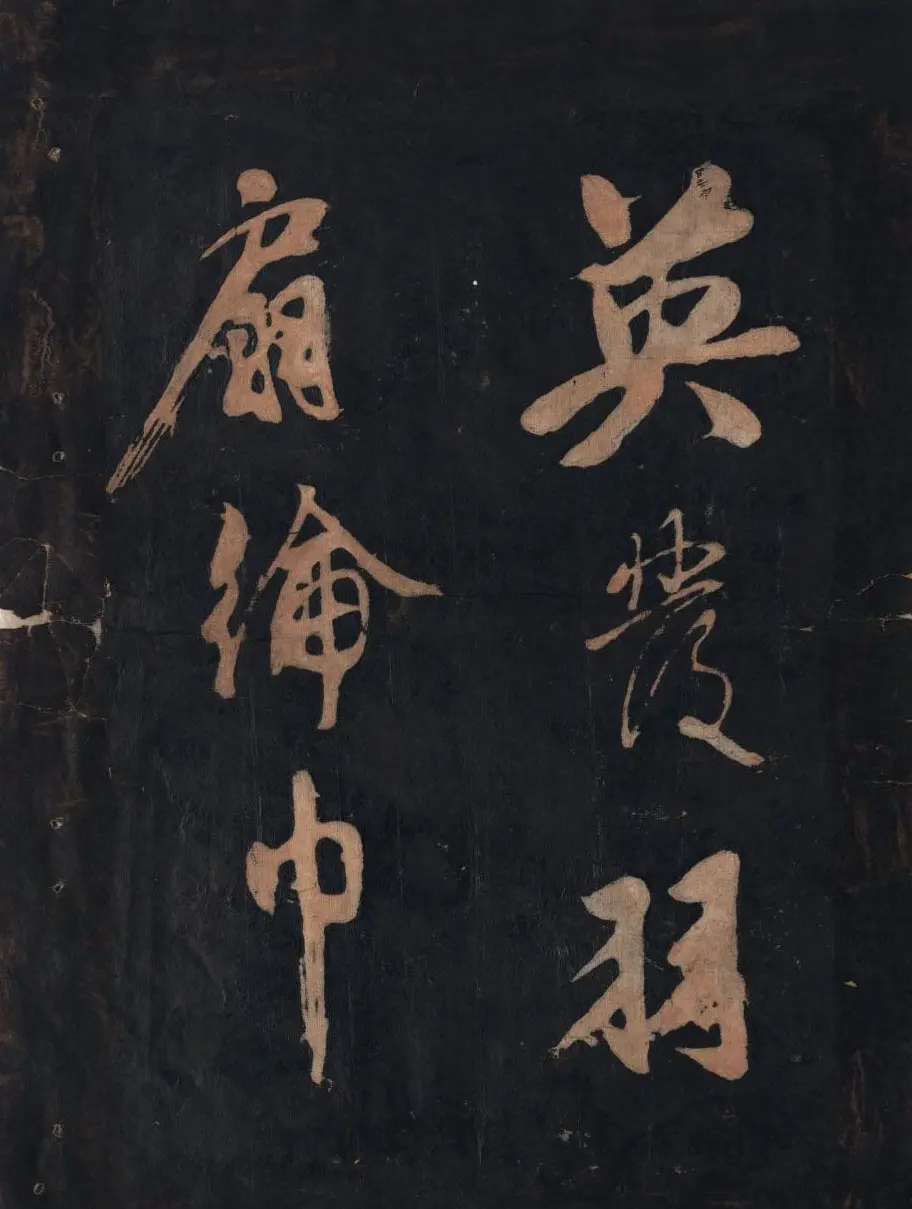 英發羽
扇綸巾